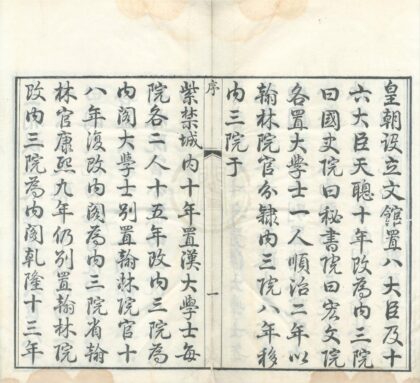 皇朝設立文館置八大臣及十
六大臣天聰十年改為內三院
曰國史院曰秘書院曰宏文院
各置大學士一人順治二年以
翰林院官分隸內三院八年移
內三院于
序
一
紫禁城內十年置漢大學士每
院各二人十五年改內三院為
內閣大學士別置翰林院官十
八年復改內閣為內三院省翰
林官康熙九年仍別置翰林院
改內三院為內閣乾隆十三年